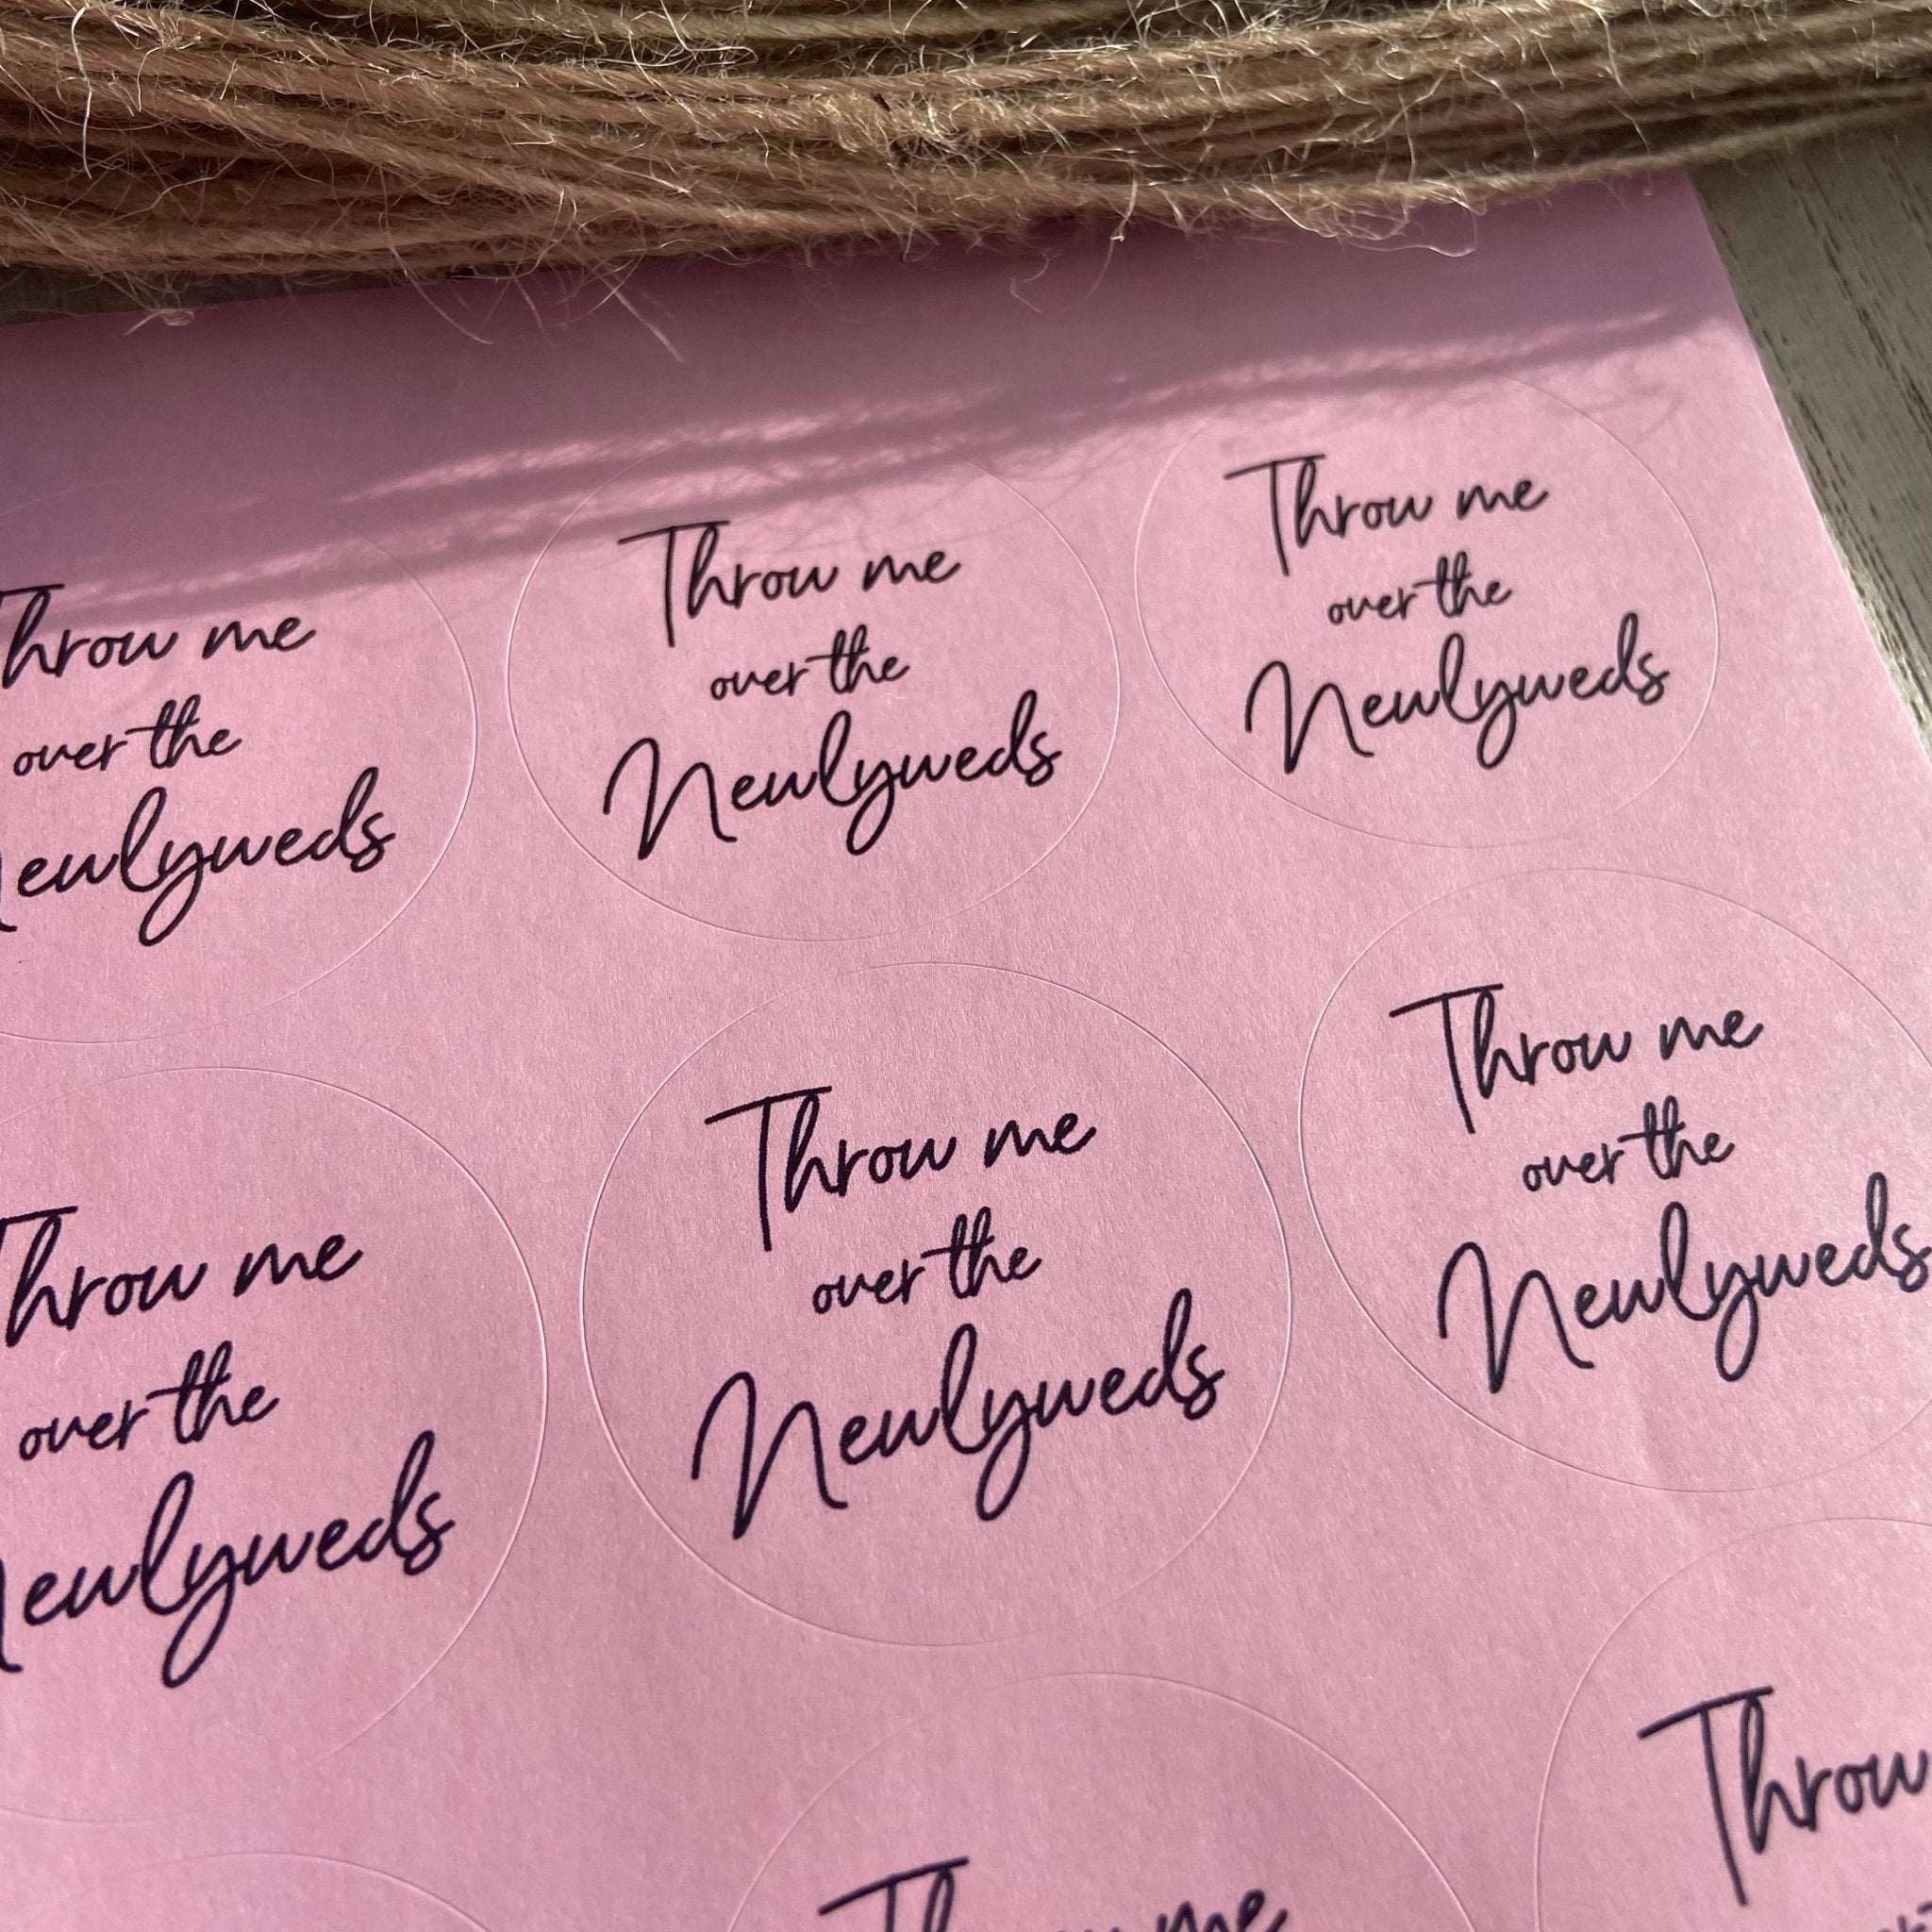 Throw me
over the
Newlyweds
Throw me
over the
Newlyweds
Throw me
over the
Newlyweds
Throw me
over the
Newlyweds
Throw me
over the
Newlyweds
Throw me
over the
Newlyweds
Throw me
Throw